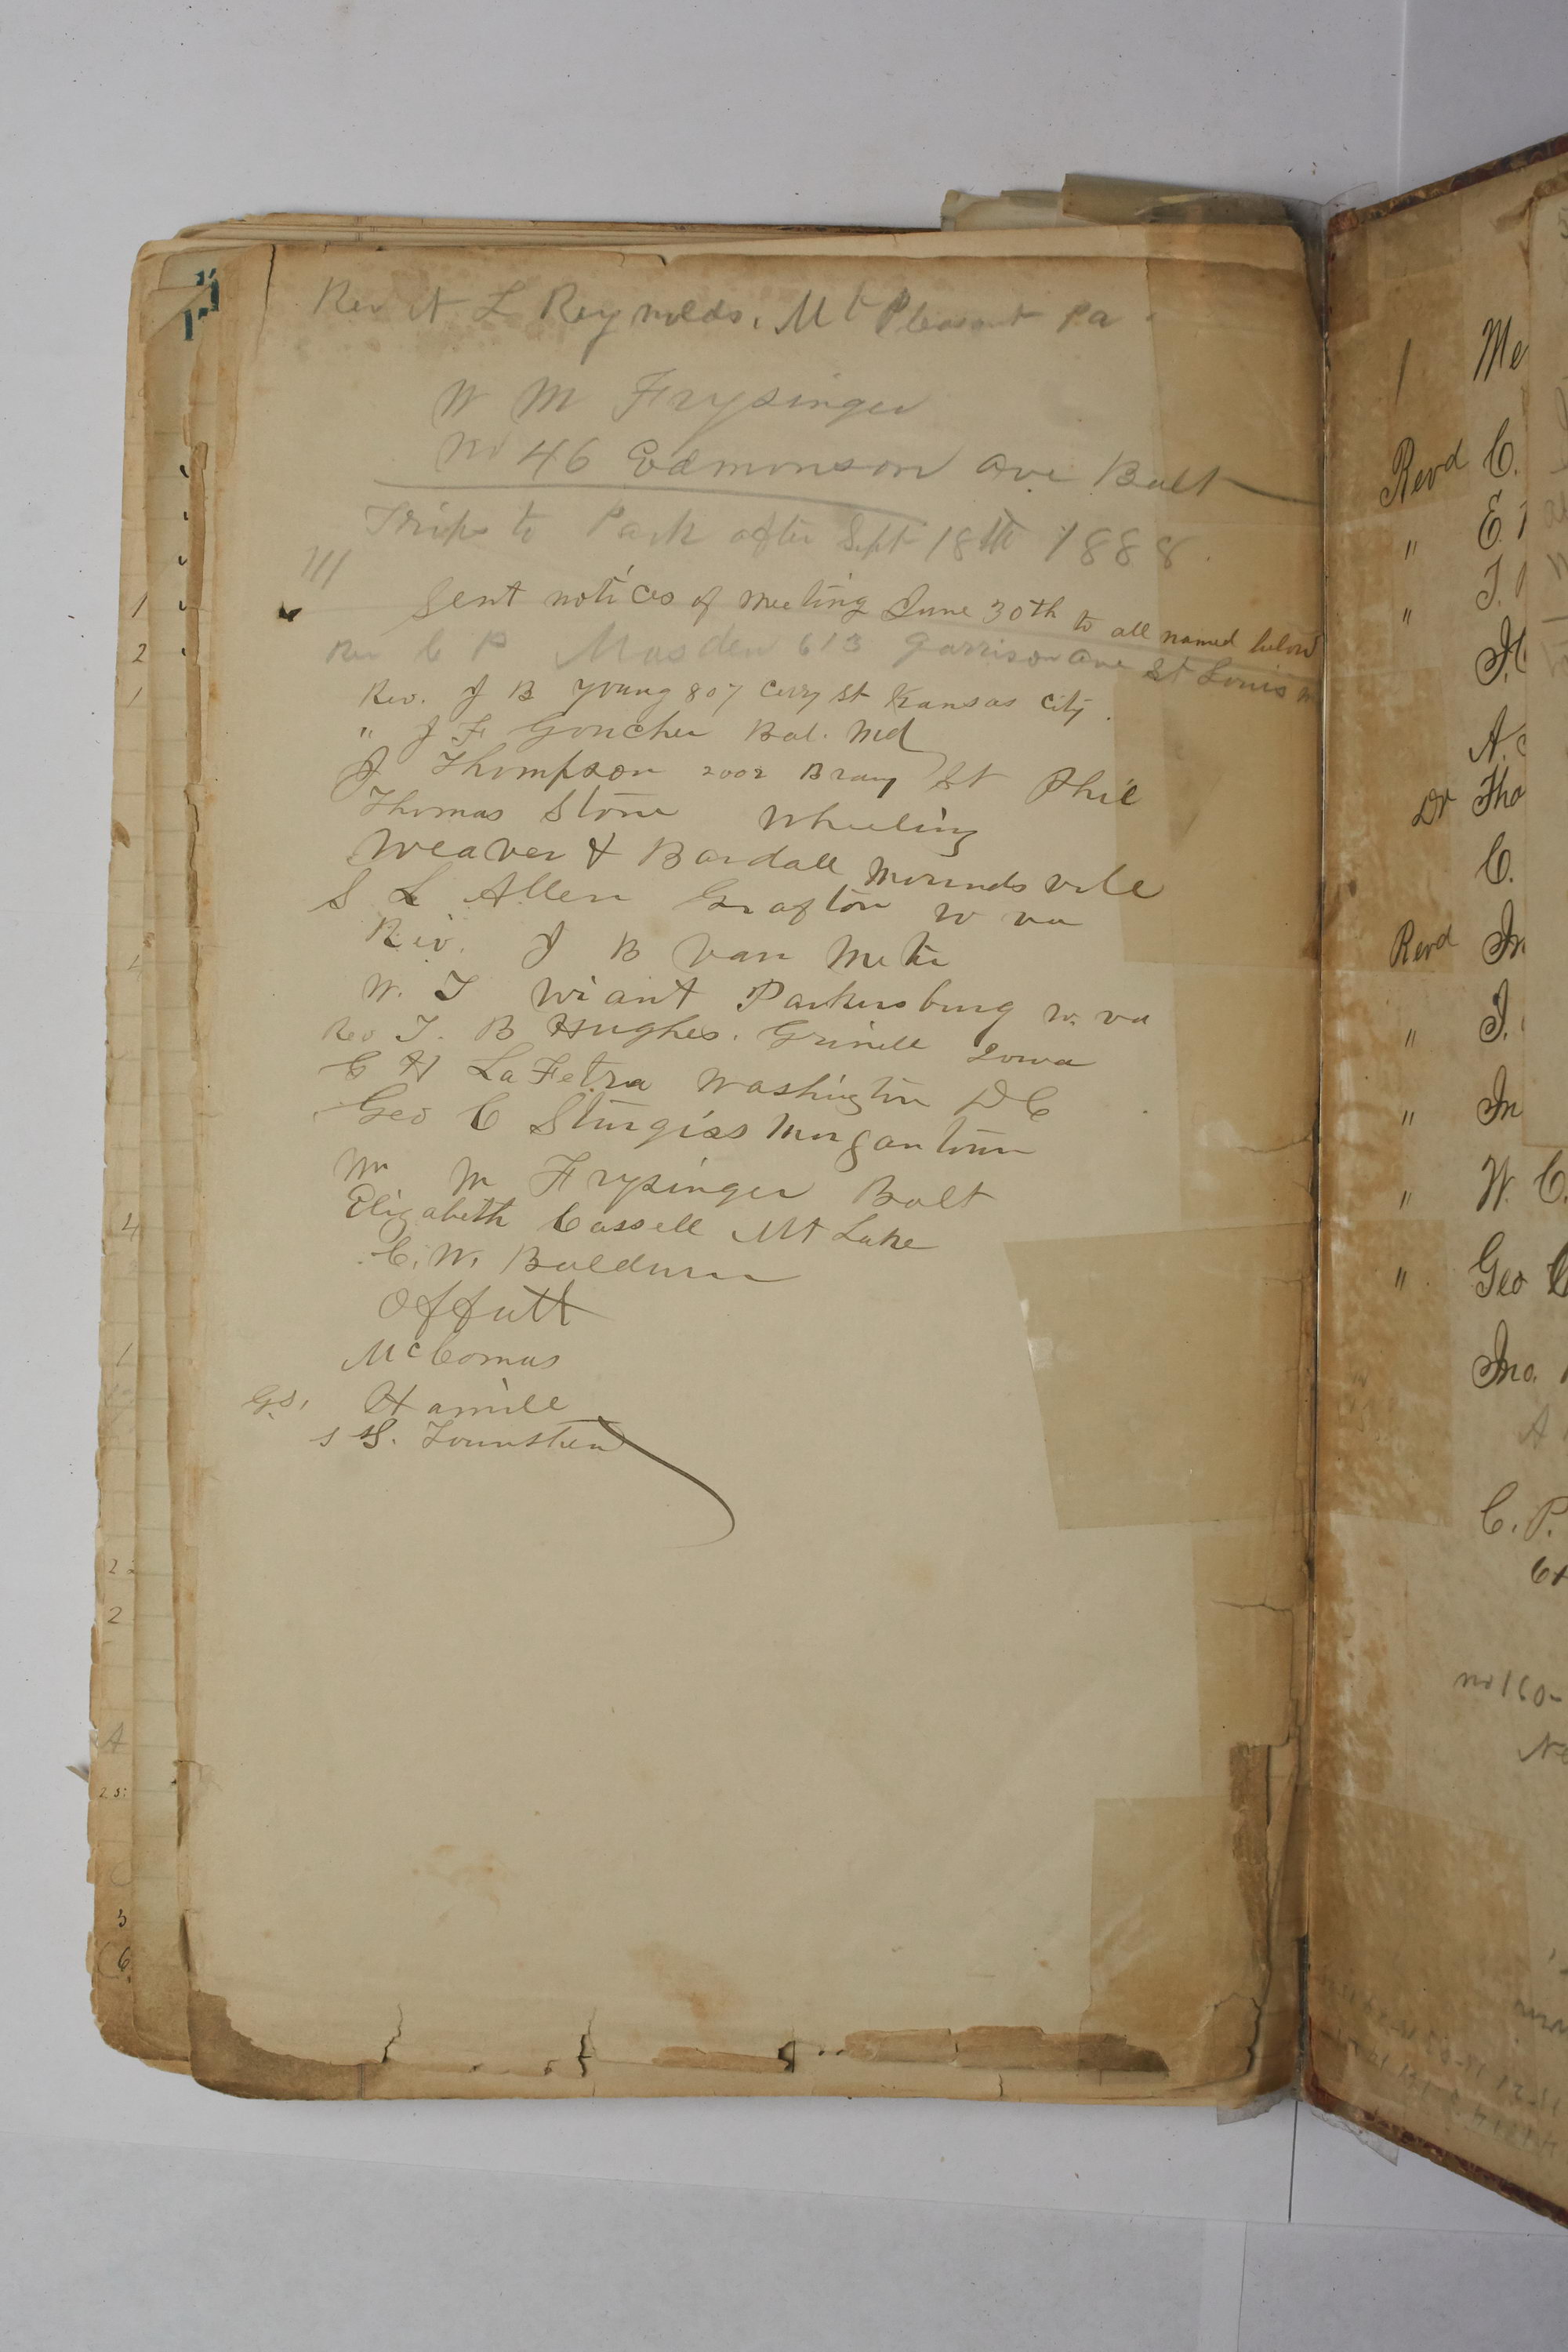 Rev A L Reynolds. Mt Pleasant Pa
W M Frysinger
No 46 Edmonson Ave Balt
Trips to Park after Sept 18th 1888.
111
Sent notices of meeting June 30th to all named below
Rev C P Masden 613 Garrison Ave St Louis
Rev. J B Young 807 St Kansas City.
" J F Goucher Bal. Md
J Thompson 2002 St Phil
Thomas Stone Wheeling
Weaver & Bardall Moundsville
S L Allen Grafton W Va
Rev. J B Van Meter
W. T Wiant Parkersburg W. Va
Rev T. B Hughes. Grinell Iowa
C H LaFetra Washington DC
Geo C Sturgiss Morgantown
Wm M Frysinger Balt
Elizabeth Cassell Mt Lake
C. W. Baldwin
Offutt
McComas
Hamill
1
Me
Revd C.
" E.
" J.
Dr Tho
C.
Revd Jn
" J.
" Jn
" W. C.
" Geo C
Jno.
A
C. P.
No 160-